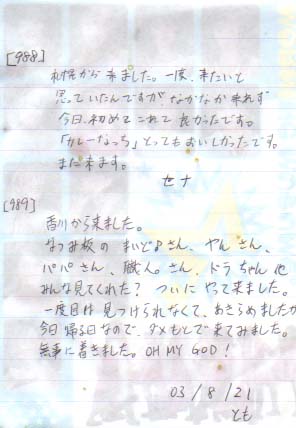 [988]
札幌から来ました。一度、来たいと
思っていたんですが、なかなか来れず
今日、初めてこれて良かったです。
「カレーなっち」とってもおいしかったです。
また来ます。
セナ
[989]
香川から来ました。
なつみ板の まいど♪さん、やんさん、
パパさん、職人。さん、ドラちゃん他
みんな見てくれた? ついにやって来ました。
一度目は見つけられなくて、あきらめましたが
今日帰る日なので、ダメもとで来てみました。
無事に着きました。OH MY GOD!
03/8/21
とも